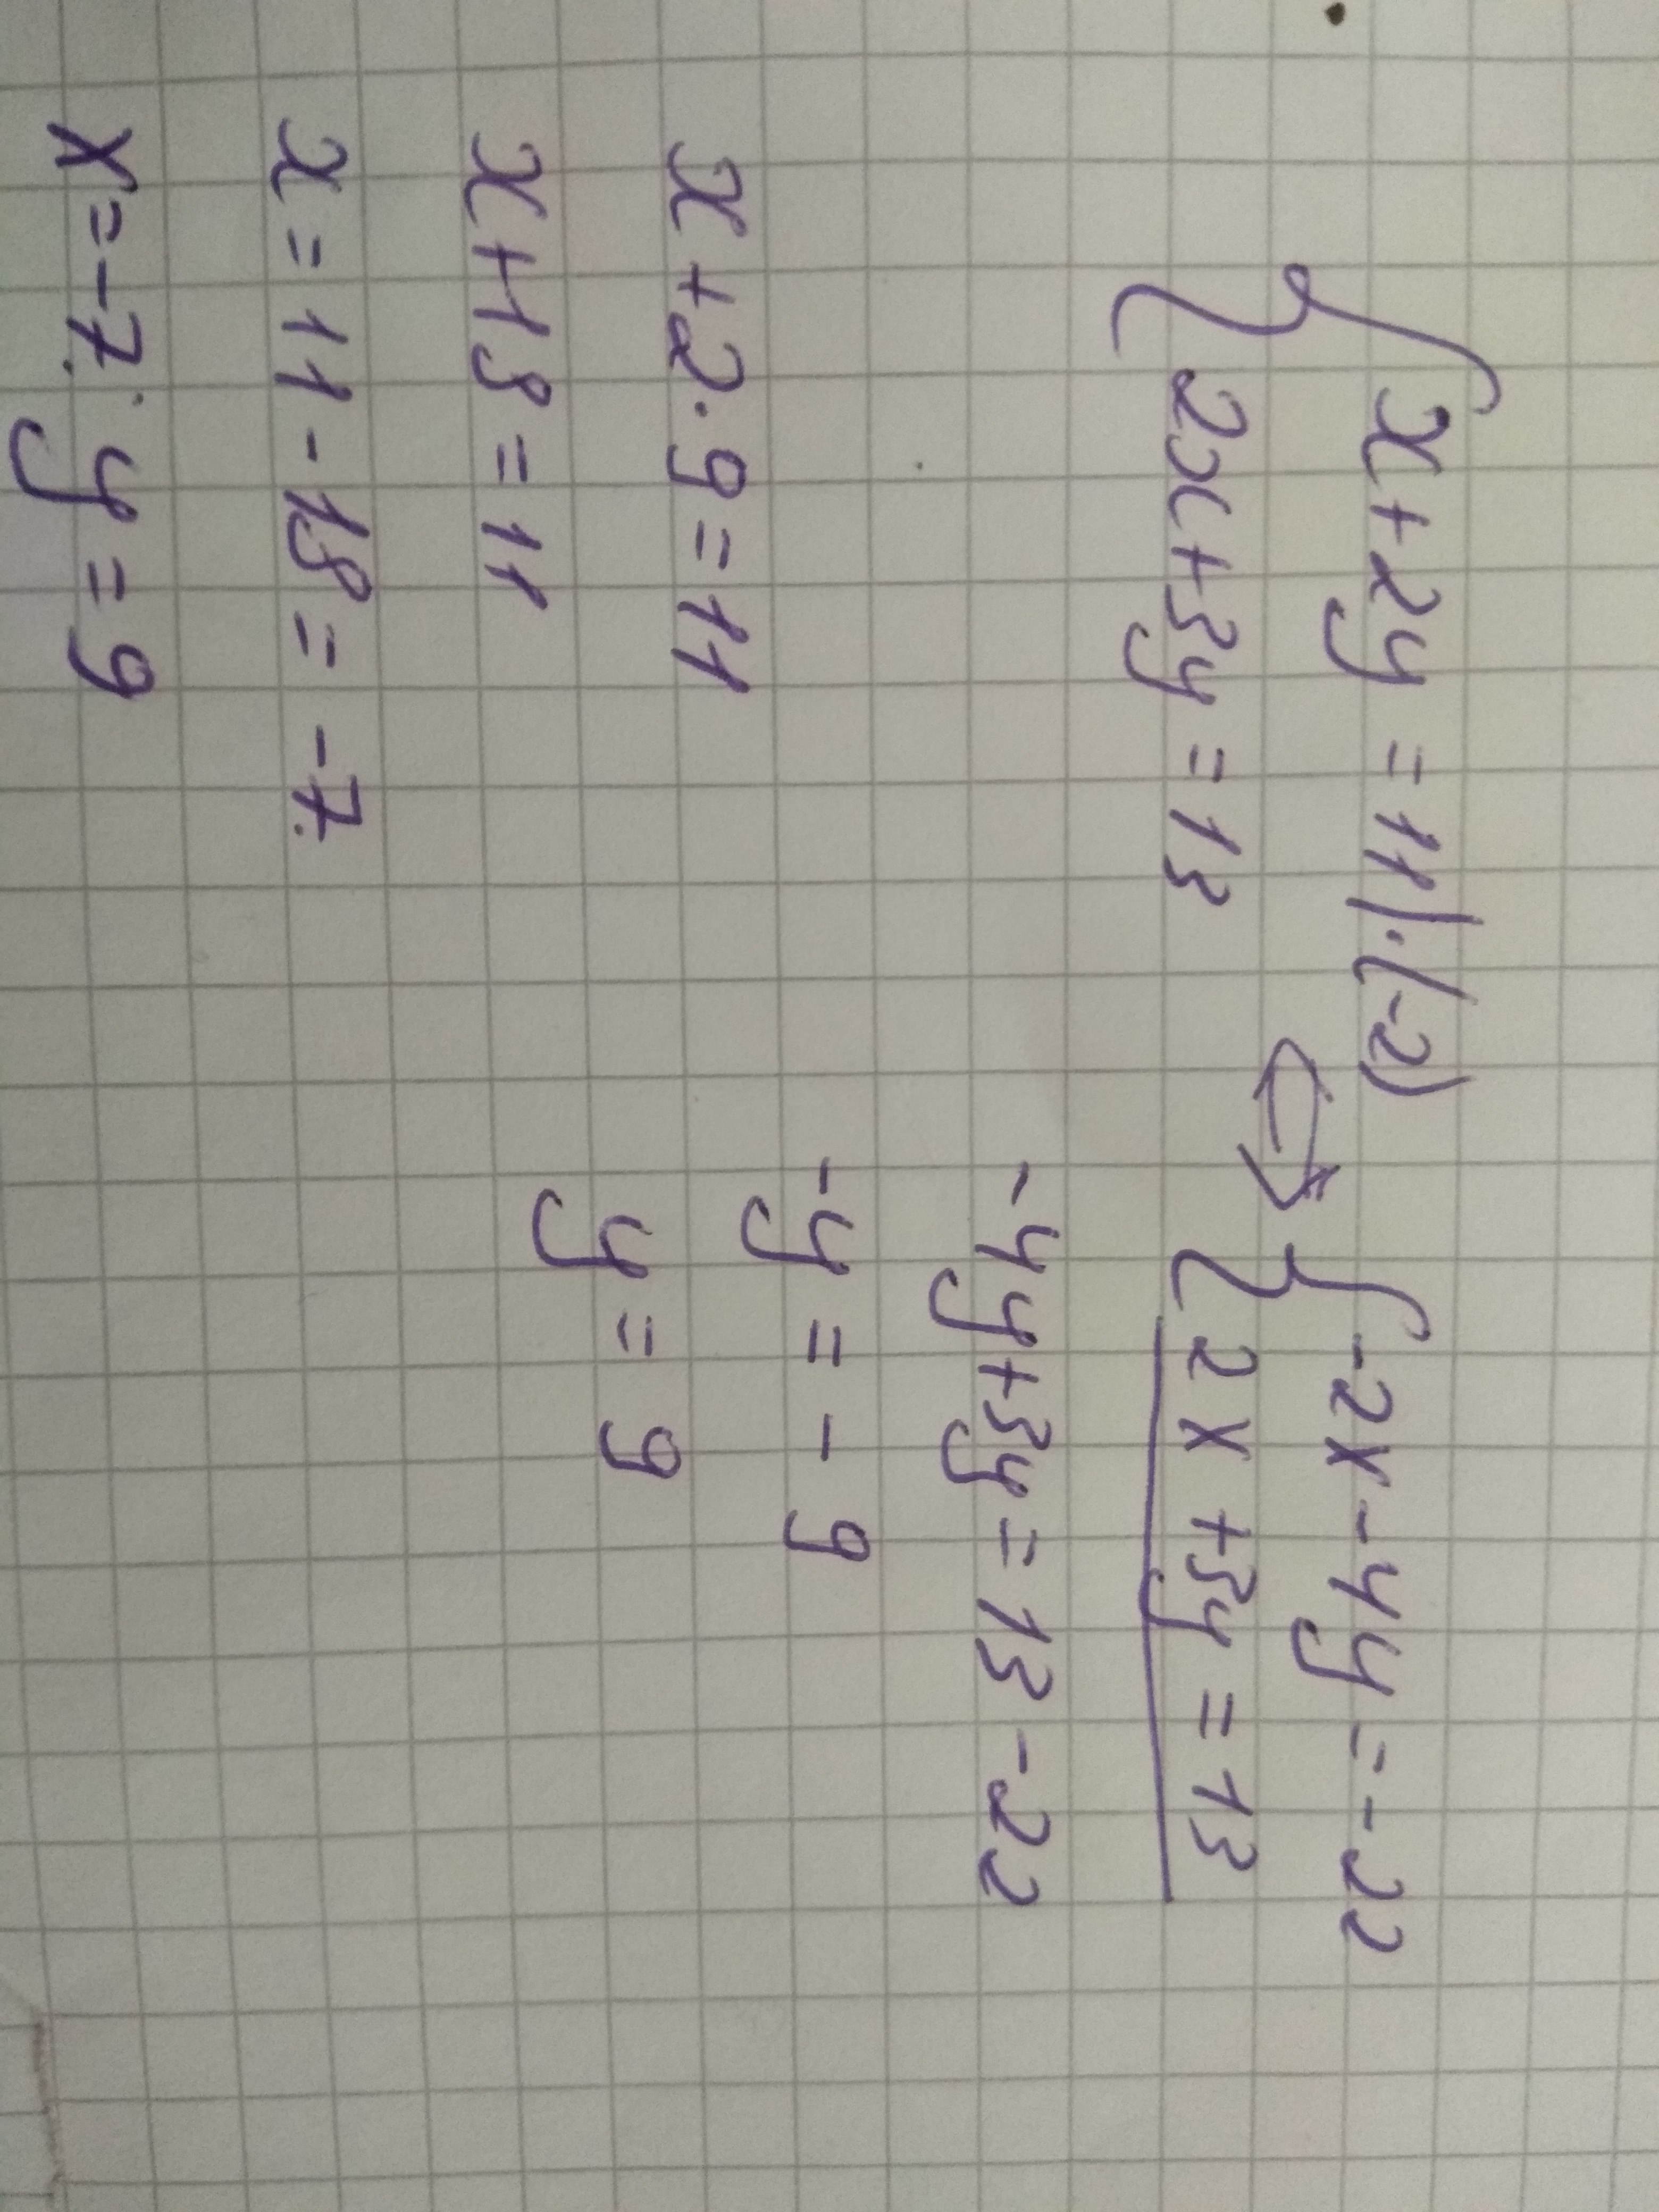 { x + 2y = 11 | · (-2)
2x + 3y = 13
⇔
{ -2x - 4y = -22
2x + 3y = 13
-4y + 3y = 13 - 22
-y = -9
y = 9
x + 2 · 9 = 11
x + 18 = 11
x = 11 - 18 = -7.
x = -7; y = 9